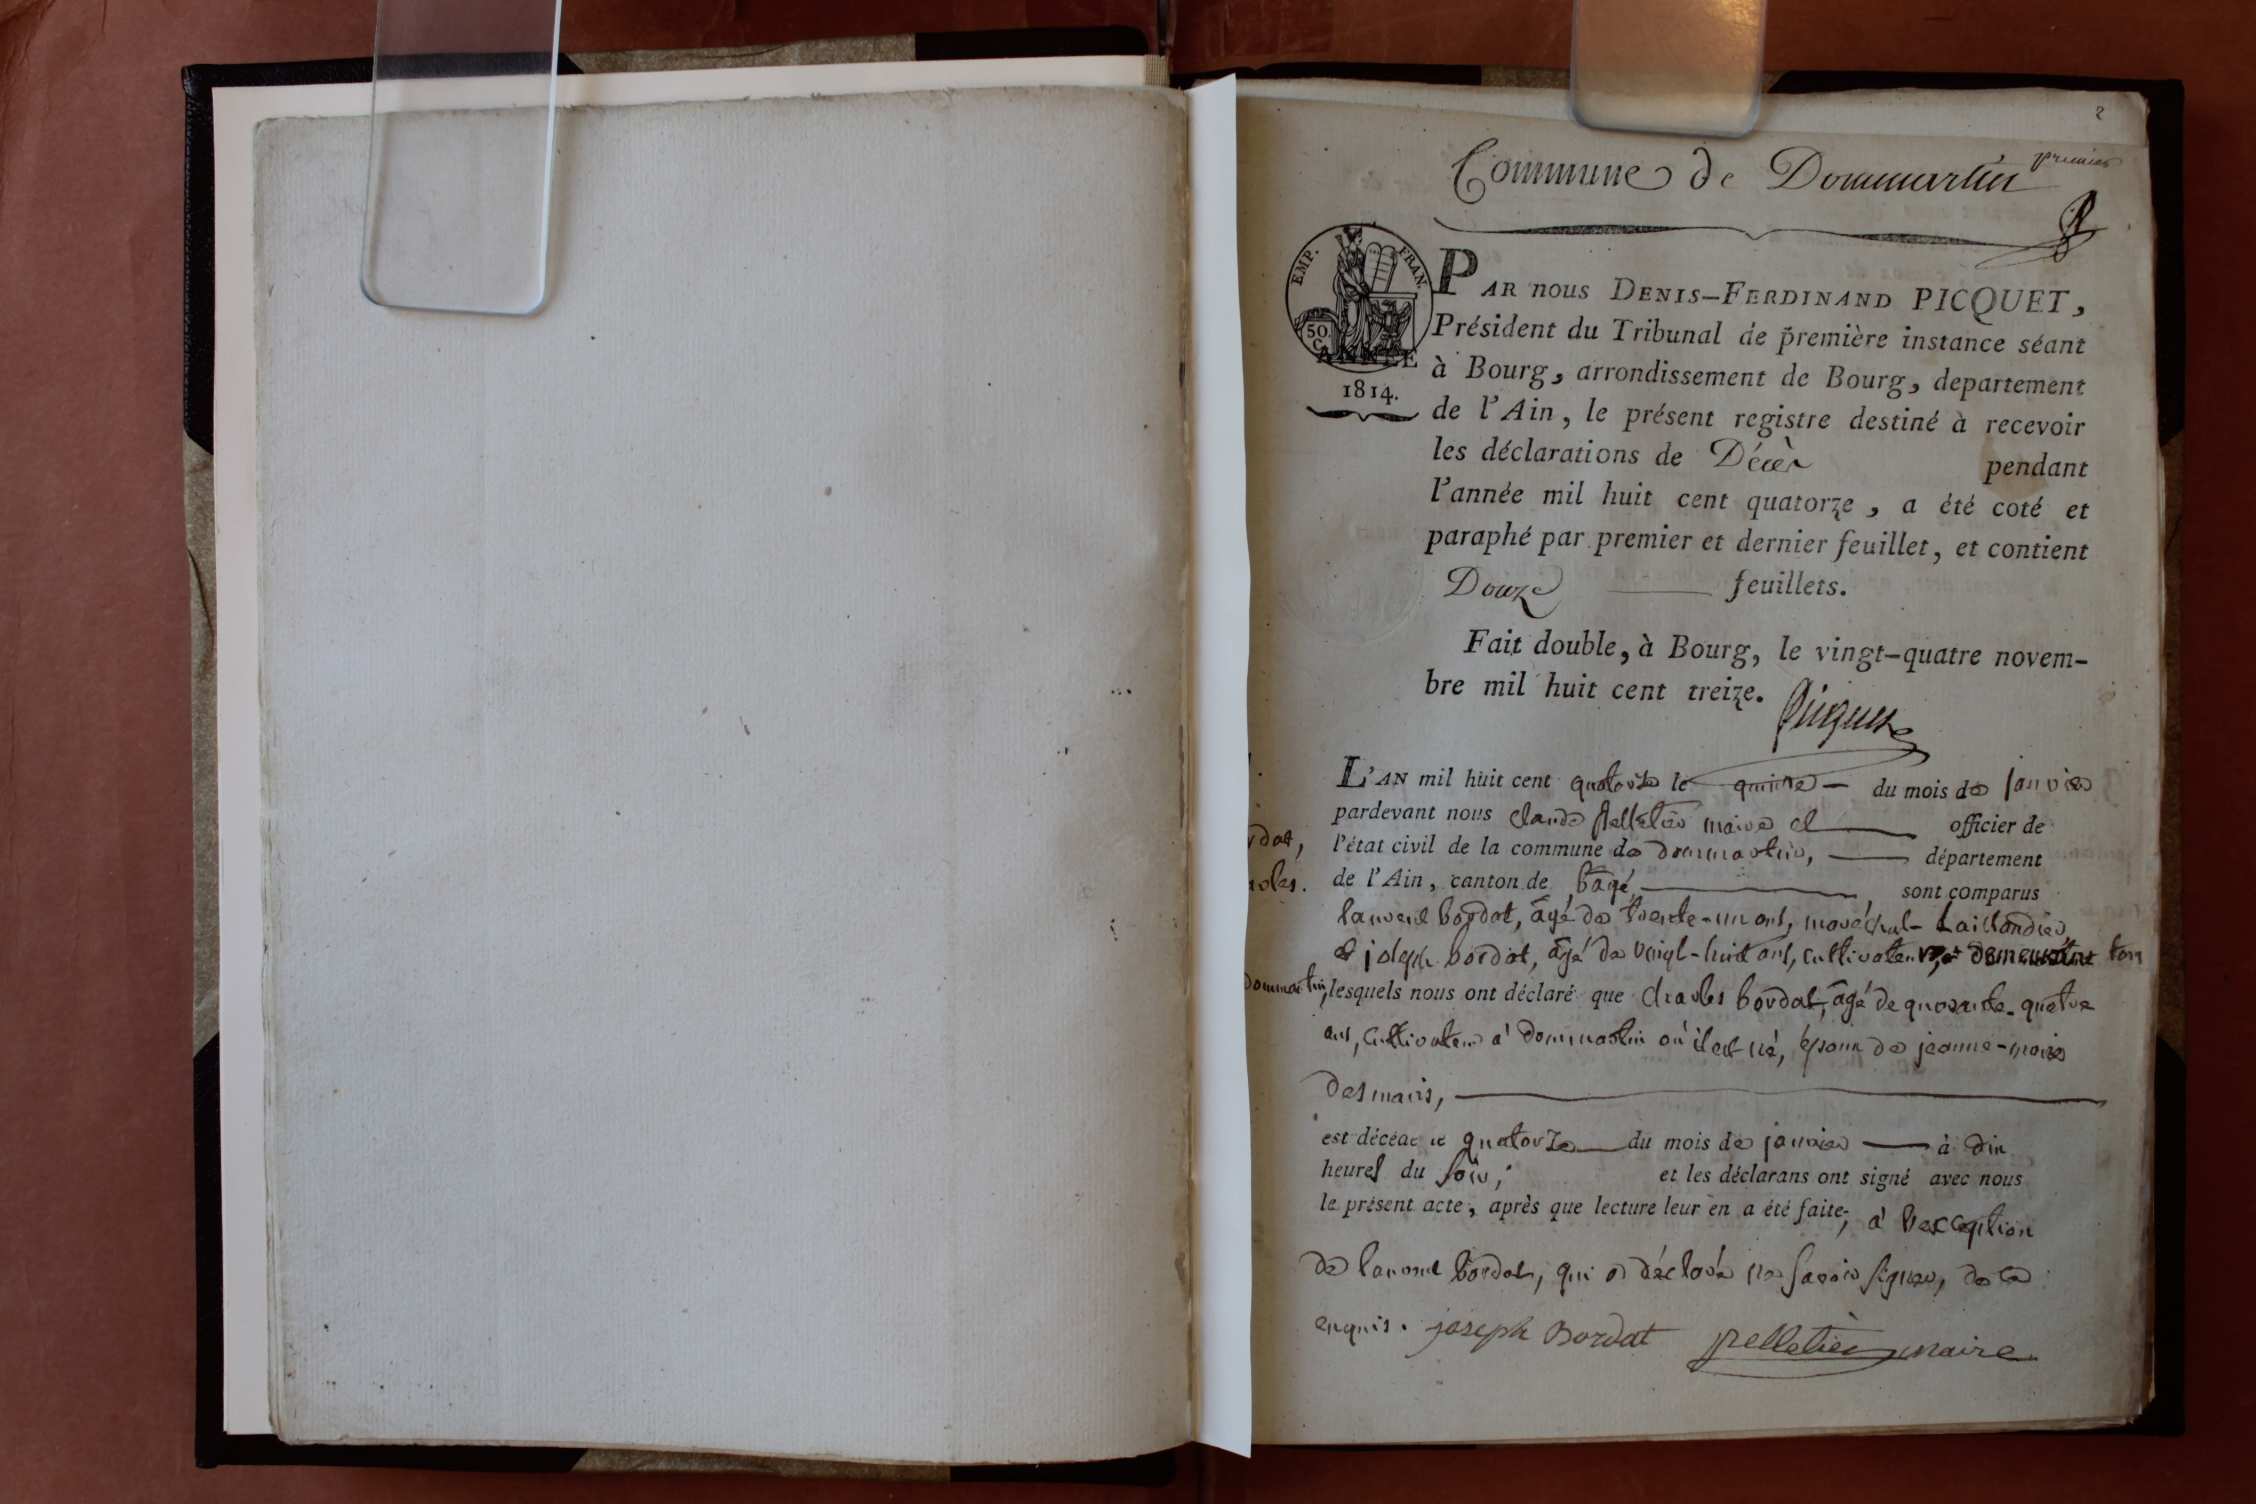 2
Commune de Dommartin
premier
EMP. FRAN.
50 C
ANNÉE
1814.
PAR nous DENIS-FERDINAND PICQUET,
Président du Tribunal de première instance séant
à Bourg, arrondissement de Bourg, departement
de l'Ain, le présent registre destiné à recevoir
les déclarations de Décès pendant
l'année mil huit cent quatorze, a été coté et
paraphé par premier et dernier feuillet, et contient
Douze feuillets.
Fait double, à Bourg, le vingt-quatre novem-
bre mil huit cent treize.
Picquet
L'AN mil huit cent quatorze le quinze du mois de janvier
pardevant nous claude pelletier maire et officier de
l'état civil de la commune de dommartin, département
de l'Ain, canton de bâgé, sont comparus
laurent bordat, âgé de trente-un ans, maréchal-taillandier,
et joseph bordat, âgé de vingt-huit ans, cultivateur,
dommartin, lesquels nous ont déclaré que charles bordat, âgé de quarante-quatre
ans, cultivateur à dommartin où il est né, époux de jeanne-marie
desmaris,
est décédé le quatorze du mois de janvier à dix
heures du soir; et les déclarans ont signé avec nous
le présent acte, après que lecture leur en a été faite, à l'exception
de laurent bordat, qui a déclaré ne savoir signer, de ce
enquis. joseph Bordat pelletier maire